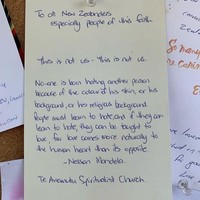 To all New Zealanders
especially people of this faith.
This is not us - This is not us.
No-one is born hating another person
because of the colour of his skin, or his
background, or his religious background.
People must learn to hate, and if they can
learn to hate, they can be taught to
love, for love comes more naturally to
the human heart than its opposite.
- Nelson Mandela.
Te Awamutu Spiritualist Church.
So many